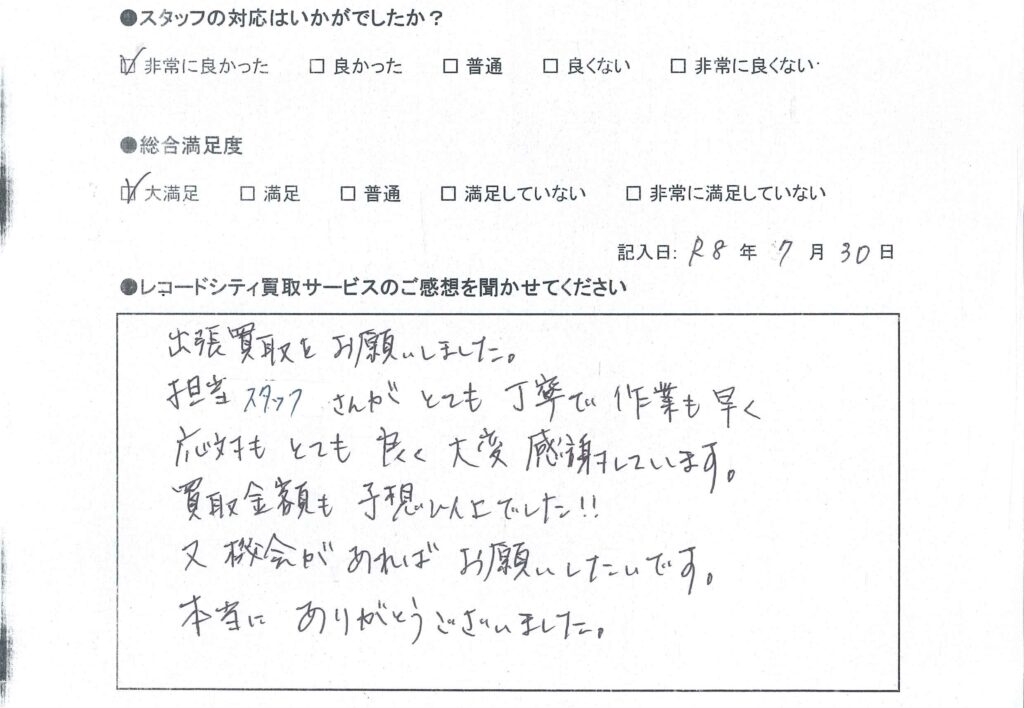 ●スタッフの対応はいかがでしたか？
☑ 非常に良かった □ 良かった □ 普通 □ 良くない □ 非常に良くない
●総合満足度
☑ 大満足 □ 満足 □ 普通 □ 満足していない □ 非常に満足していない
記入日: R8 年 7 月 30 日
●レコードシティ買取サービスのご感想を聞かせてください
出張買取をお願いしました。
担当スタッフさんがとても丁寧で作業も早く
応対もとても良く大変感謝しています。
買取金額も予想以上でした!!
又機会があればお願いしたいです。
本当にありがとうございました。